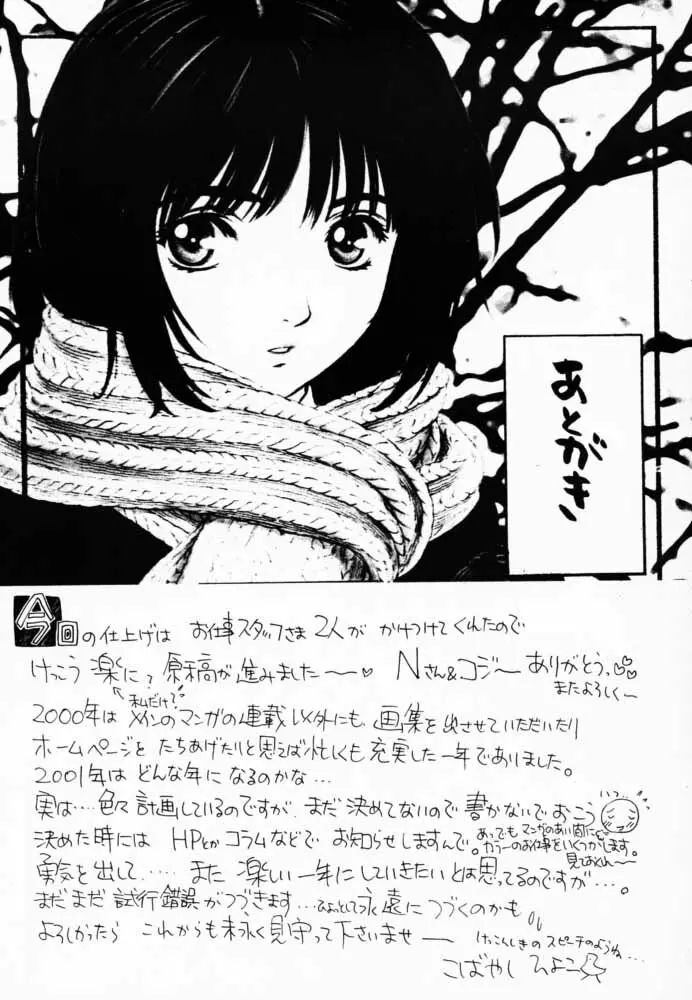 あとがき
今回の仕上げは お仕事スタッフさま2人が かけつけてくれたので
けっこう楽に? 原稿が進みました〜〜♥ Nさん&コジ〜ありがとう。
またよろしく〜
私だけ?
2000年は メインのマンガの連載以外にも、画集を出させていただいたり
ホームページを たちあげたりと思えば忙しくも充実した一年でありました。
2001年は どんな年になるのかな…
実は…色々計画しているのですが、まだ決めてないので書かないでおこう
決めた時には HPとかコラムなどで お知らせしますんで。
あっでもマンガのあい間に
カラーのお仕事をいくつかします。
見てみてくれ〜〜
勇気を出して…… また 楽しい一年にしていきたいとは思ってるのですが…。
まだまだ 試行錯誤がつづきます…ひょっとして永遠につづくのかも
よろしかったら これからも末永く見守って下さいませ〜
けっこんしきのスピーチのようね…
こばやし ひよこ